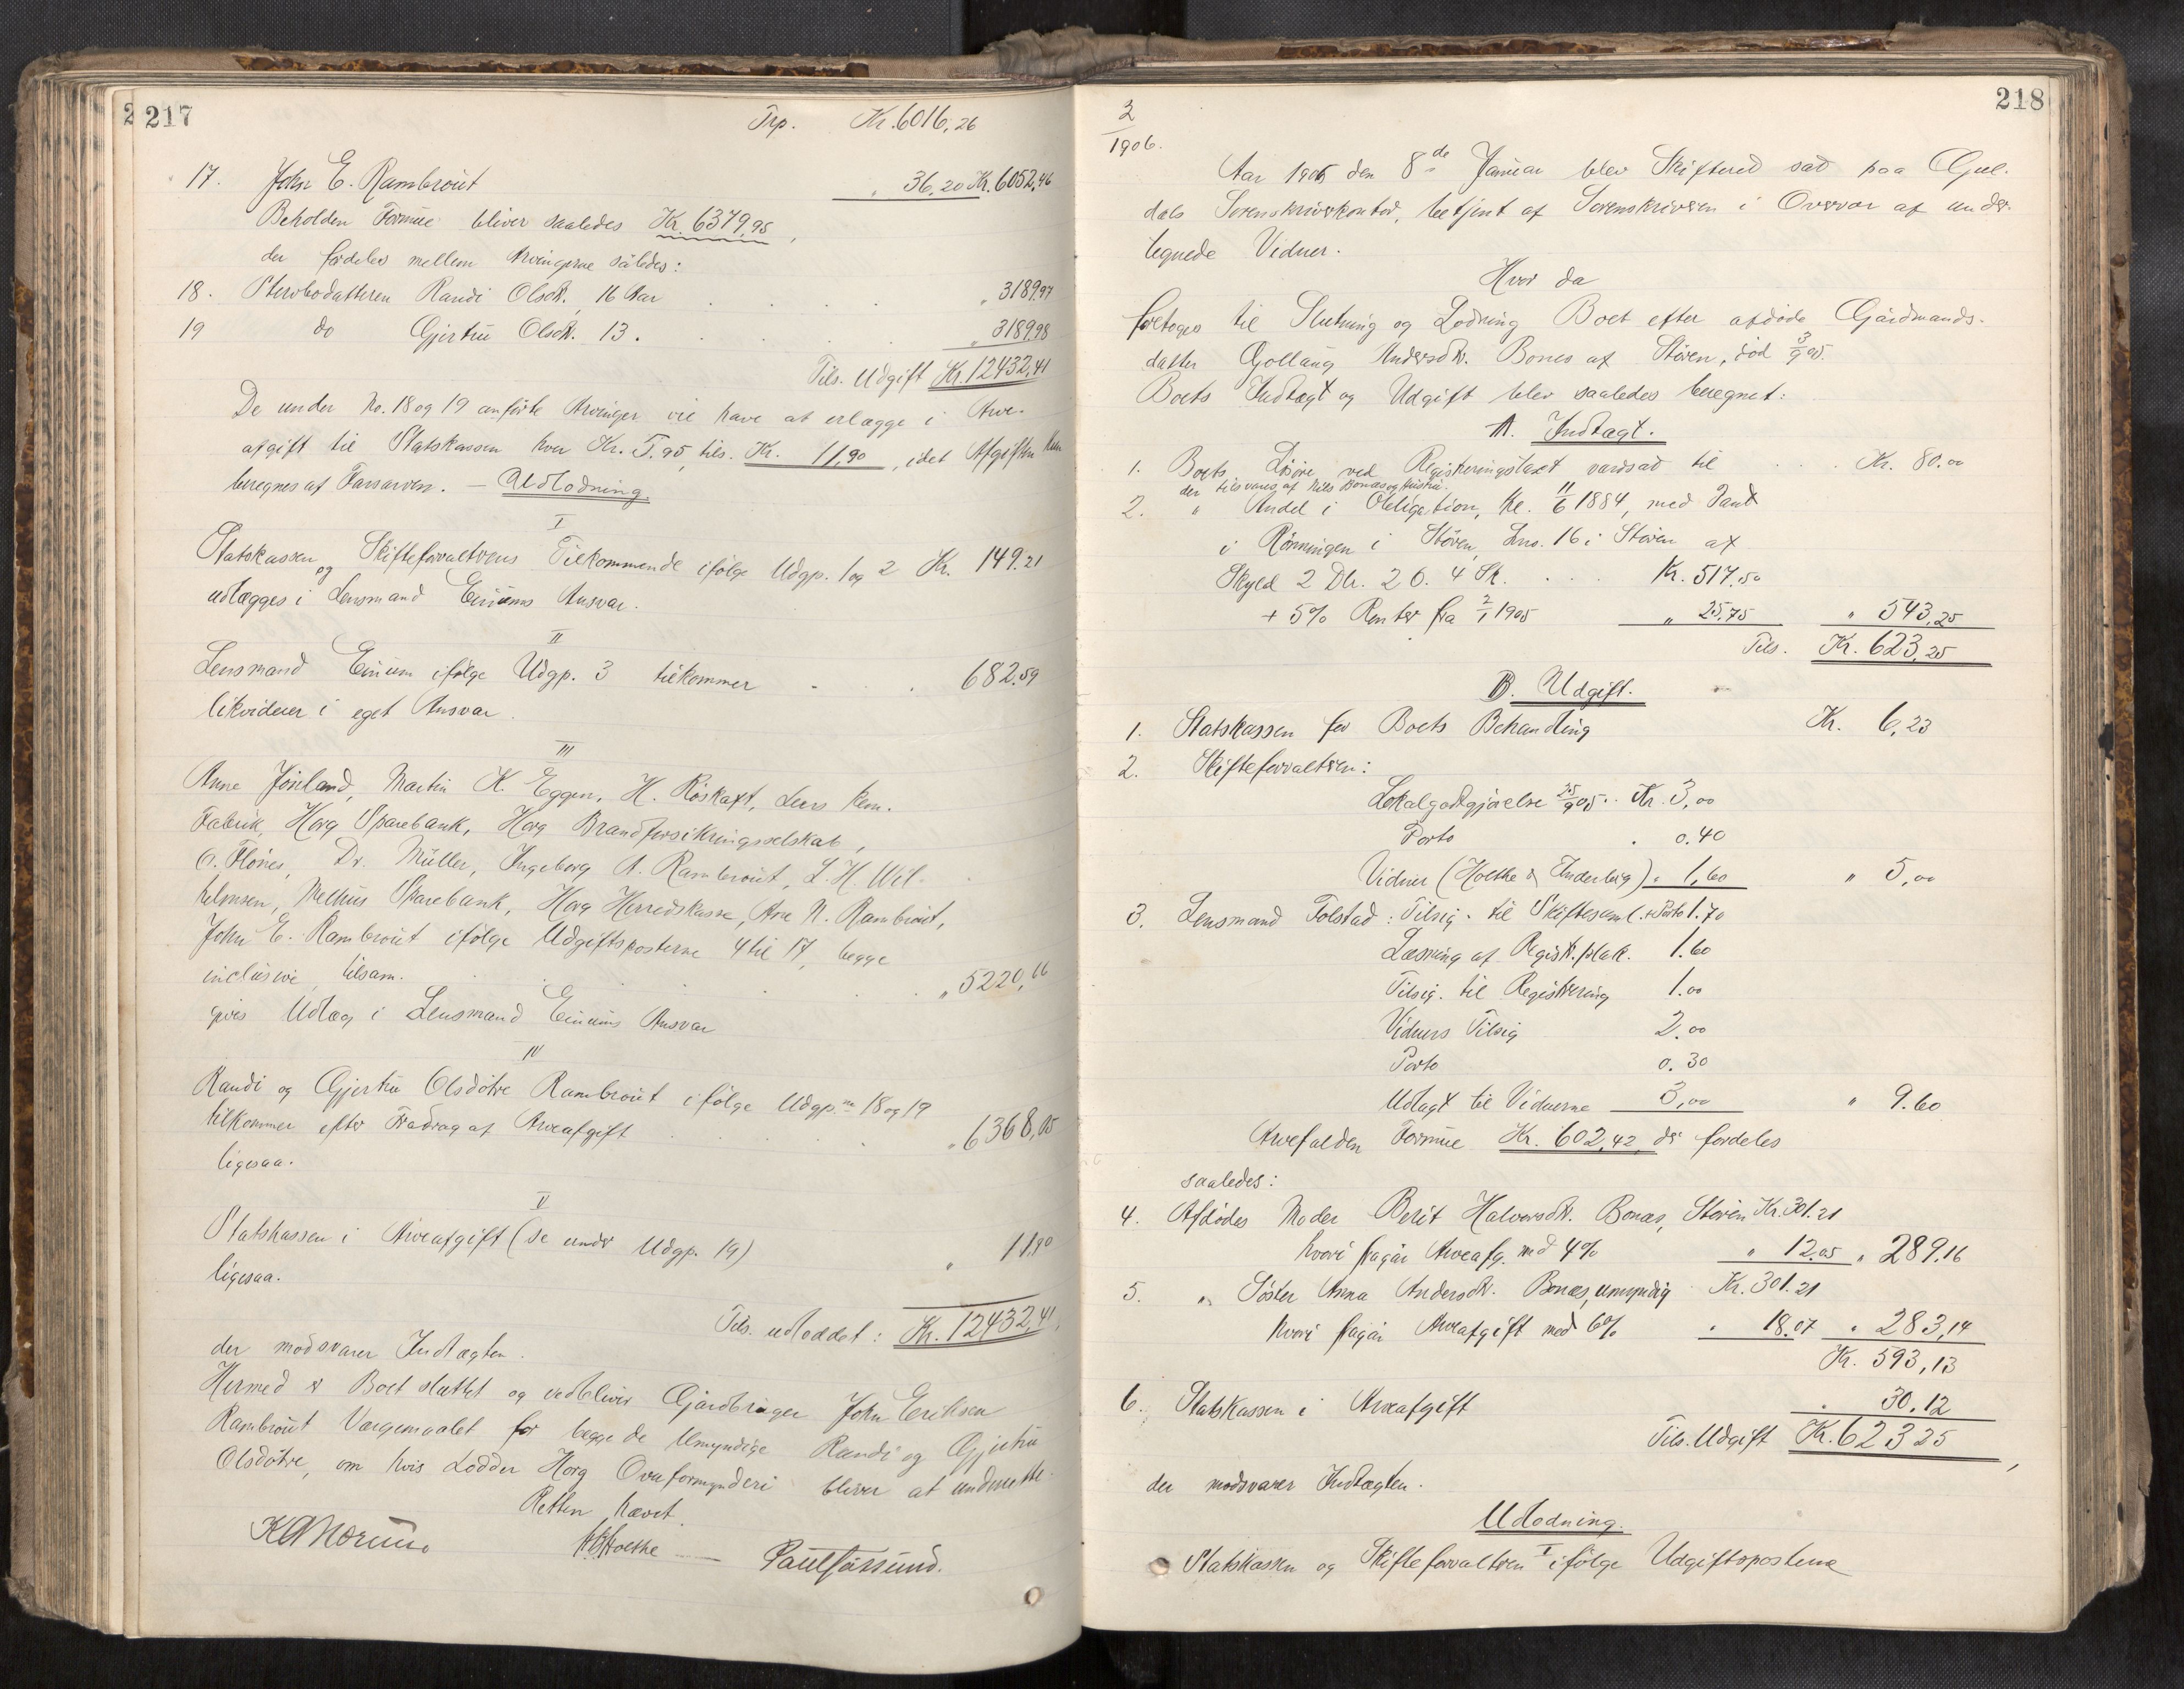 217
Trp. Kr. 6016,26
17. John E. Rambrout " 36,20 Kr. 6052,46
Beholden Formue bliver saaledes Kr. 6379,95,
der fordeles mellem Arvingerne således:
18. Stervbodatteren Randi Olsdt. 16 Aar . . . . " 3189,97
19 do Gjertru Olsdt. 13 . . . . . " 3189,98
Tils. Udgift Kr. 12432,41
De under No. 18 og 19 anførte Arvinger vil have at erlægge i Arve-
afgift til Statskassen hver Kr. 5.95, tils. Kr. 11,90, idet Afgiften kun
beregnes af Farsarven. — Udlodning.
I
Statskassen og Skifteforvalterens Tilkommende ifølge Udgp. 1 og 2 Kr. 149.21
udlægges i Lensmand Eniums Ansvar.
II
Lensmand Enium ifølge Udgp. 3 tilkommer . . 682.59
likviderer i eget Ansvar.
III
Anne Joiland, Martin K. Eggen, H. Röskaft, Lers kem.
Fabrik, Horg Sparebank, Horg Brandforsikringsselskab,
O. Flönes, Dr. Müller, Ingeborg A. Rambrout, L. H. Wil-
helmsen, Melhus Sparebank, Horg Herredskasse, Ane N. Rambrout,
John E. Rambrout ifølge Udgiftsposterne 4 til 17, begge
inclusive, tilsam. . . . . . . " 5220,66
gives Udlæg i Lensmand Eniums Ansvar
IV
Randi og Gjertru Olsdötre Rambrout ifølge Udgp.ne 18 og 19
tilkommer efter Fradrag af Arveafgift . . . . " 6368,05
ligesaa.
V
Statskassen i Arveafgift (se under Udgp. 19) " 11,90
ligesaa.
Tils. udloddet: Kr. 12432,41,
der modsvarer Indtægten.
Hermed er Boet sluttet og vedbliver Gårdbruger John Eriksen
Rambrout Værgemaalet for begge de Umyndige Randi og Gjertru
Olsdötre, om hvis Lodder Horg Overformynderi bliver at underrette.
Retten hævet.
Holthe — Paul Jörsund.
218
2/1906.
Aar 1906 den 8de Januar blev Skifteret sat paa Gul-
dals Sorenskriverkontor, betjent af Sorenskriveren i Overvær af under-
tegnede Vidner.
Hvor da
foretoges til Slutning og Lodning Boet efter afdöde Gårdmands-
datter Gollaug Andersdtr. Bones af Støren, död 3/9 05.
Boets Indtægt og Udgift blev saaledes beregnet:
A. Indtægt.
1. Boets Lösöre ved Registreringstaxt værdsat til . . . Kr. 80.00
der tilsvares af Nils Bonæs og Hustru.
2. " Andel i Obligation, Kl. 11/6 1884, med Pant
i Rönningen i Stören, Lno. 16 i Stören af
Skyld 2 Dlr. 2 O. 4 Sk. . . . Kr. 517.50
+ 5% Renter fra 2/1 1905 " 25.75 " 543,25
Tils. Kr. 623,25
B. Udgift.
1. Statskassen for Boets Behandling Kr. 6,23
2. Skifteforvalteren:
Lokalgodtgjørelse 25/9 05 .. Kr. 3,00
Porto . 0.40
Vidner (Holthe & Enderberg) " 1,60 " 5,00
3. Lensmand Folstad: Tilsig. til Skiftesaml. + Porto 1.70
Læsning af Registr.plak. 1.60
Tilsig. til Registrering 1.00
Vidners Tilsig 2.00
Porto 0.30
Udlagt til Vidnerne 3,00 " 9.60
Arvefalden Formue Kr. 602,42, der fordeles
saaledes:
4. Afdödes Moder Berit Halvorsdtr. Bonæs, Stören Kr. 301.21
hvori fragår Arveafg. med 4% " 12.05 " 289,16
5. " Söster Anna Andersdtr. Bonæs, umyndig Kr. 301.21
hvori fragår Arveafgift med 6% " 18.07 " 283,14
Kr. 593,13
6. Statskassen i Arveafgift " 30.12
Tils. Udgift Kr. 623 25,
der modsvarer Indtægten.
Udlodning.
I
Statskassen og Skifteforvalteren ifølge Udgiftsposterne